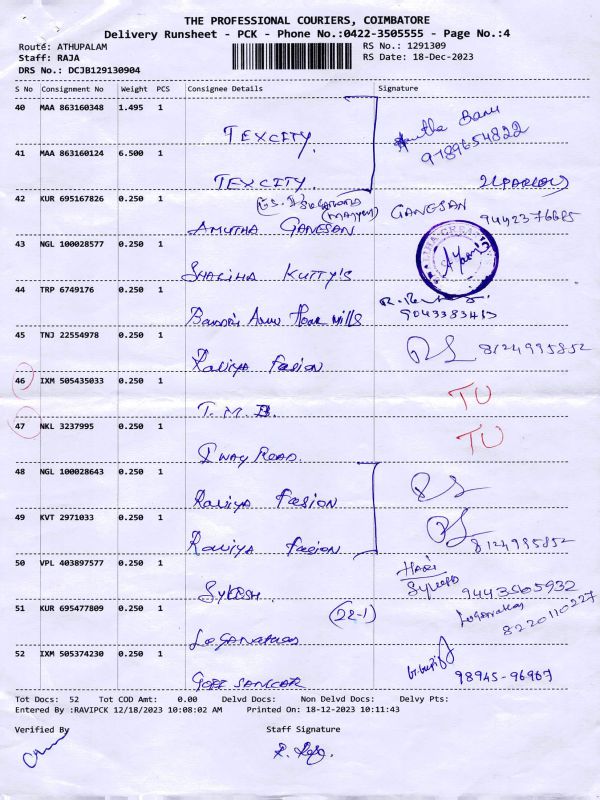 THE PROFESSIONAL COURIERS, COIMBATORE
Delivery Runsheet - PCK - Phone No.:0422-3505555 - Page No.:4
Route: ATHUPALAM RS No.: 1291309
Staff: RAJA RS Date: 18-Dec-2023
DRS No.: DCJB129130904
S No Consignment No Weight PCS Consignee Details Signature
40 MAA 863160348 1.495 1 TEXCITY. Banu
9789654822
41 MAA 863160124 6.500 1 TEXCITY.
42 KUR 695167826 0.250 1 AMUTHA GANESAN GANESAN 9442376685
43 NGL 100028577 0.250 1 SHALIHA KUTTY'S
44 TRP 6749176 0.250 1 Flour Mills
45 TNJ 22554978 0.250 1 Raviya fasion 8124995852
46 IXM 505435033 0.250 1 T.M.B. TU
47 NKL 3237995 0.250 1 I WAY ROAD. TU
48 NGL 100028643 0.250 1 Raviya fasion
49 KVT 2971033 0.250 1 Raviya fasion 8124995852
50 VPL 403897577 0.250 1 HARI
9443565932
51 KUR 695477809 0.250 1 LOGANATHAN (22-1) 8220110227
52 IXM 505374230 0.250 1 GOPI SANKAR 98945-96967
Tot Docs: 52 Tot COD Amt: 0.00 Delvd Docs: Non Delvd Docs: Delvy Pts:
Entered By :RAVIPCK 12/18/2023 10:08:02 AM Printed On: 18-12-2023 10:11:43
Verified By Staff Signature